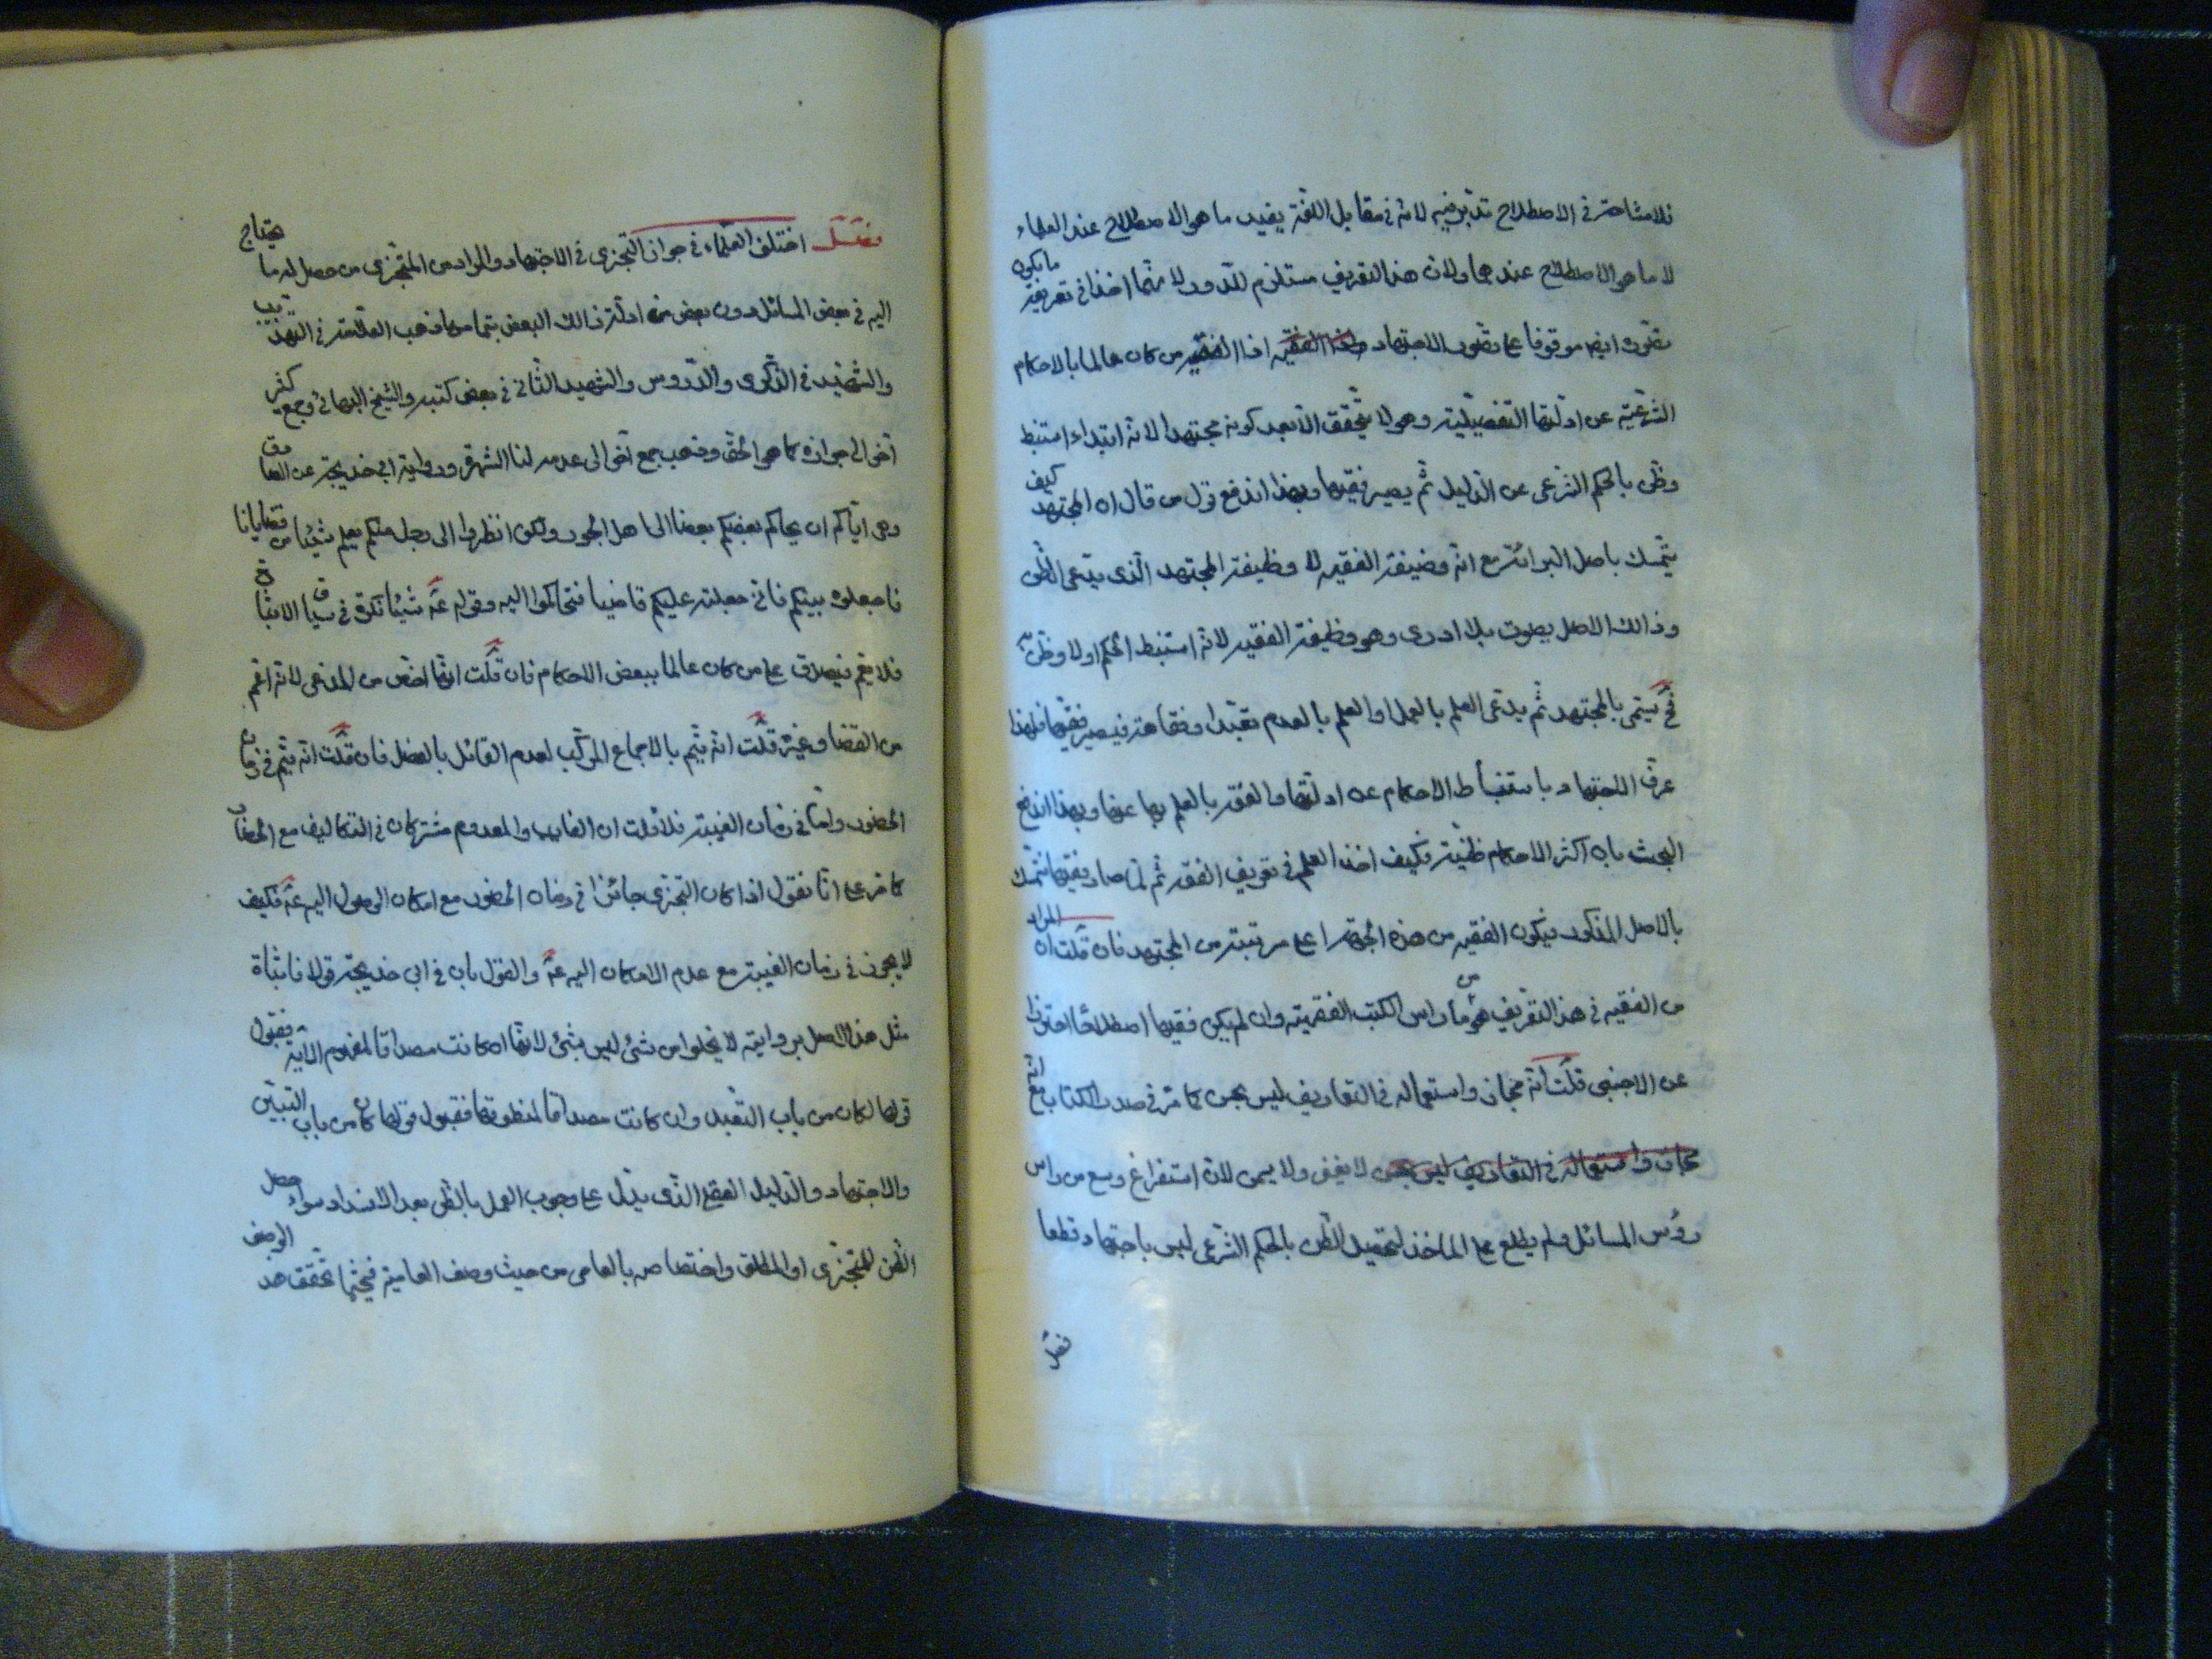 فلامشاحة فى الاصطلاح تدبر فيه لانه فى مقابل اللغة يفيد ما هو الاصطلاح عند العلماء
لا ما هو الاصطلاح عندهما ولان هذا التعريف مستلزم للدور لا سيما اخذا فى تعريفه ما يكون
تصوره ايضا موقوفا على تصور الاجتهاد اذا الفقيه من كان عالما بالاحكام
الشرعية عن ادلتها التفصيلية وهو لا يتحقق الا بعد كونه مجتهدا لانه ابتداء استنبط
وظن بالحكم الشرعى عن الدليل ثم يصير فقيها وبهذا اندفع قول من قال ان المجتهد كيف
يتمسك باصل البرائة مع انه وضيفة الفقيه لا وظيفة المجتهد الذى يدعى الظن
وذالك الاصل بصوت بلا ادرى وهو وظيفة الفقيه لانه استنبط الحكم اولا وظن به
فح يسمى بالمجتهد ثم يدعى العلم بالعمل او العلم بالعدم تعبدا وفقاهة فيصير فقيها فلهذا
عرف الاجتهاد باستنباط الاحكام عن ادلتها والفقه بالعلم بها عنها وبهذا اندفع
البحث بان اكثر الاحكام ظنية فكيف اخذ العلم فى تعريف الفقه ثم لما صار فقيها تمسك
بالاصل المذكور فيكون الفقيه من هذه الجهة اعلى مرتبة من المجتهد فان قلت ان المراد
من الفقيه فى هذا التعريف هو من مارس الكتب الفقهية وان لم يكن فقيها اصطلاحا احترازا
عن الاجنبى قلت انه مجاز واستعماله فى التعاريف ليس بحسن كما مر فى صدر الكتاب مع انه
مجاز واستعماله فى التعاريف ليس بحسن لا يغنى ولا يسمن لان استفراغ وسع من مارس
رؤس المسائل ولم يطلع على الماخذ لتحصيل الظن بالحكم الشرعى ليس باجتهاد قطعا
فصل اختلف العلماء فى جواز التجزى فى الاجتهاد والمراد من المتجزى من حصل له ما يحتاج
اليه فى بعض المسائل دون بعض من ادلة ذالك البعض بتمامها فذهب العلامة فى التهذيب
والشهيد فى الذكرى والدروس والشهيد الثانى فى بعض كتبه والشيخ البهائى وجمع كثير
آخر الى جوازه كما هو الحق وذهب جمع آخر الى عدمه لنا الشهرة ورواية ابى خديجة عن الصادق
وهى اياكم ان يحاكم بعضكم بعضا الى اهل الجور ولكن انظروا الى رجل منكم يعلم شيئا من قضايانا
فاجعلوه بينكم فانى جعلته عليكم قاضيا فتحاكموا اليه وقوله ع شيئا نكرة فى سياق الاثبات
فلا يعم فيصدق على من كان عالما ببعض الاحكام فان قلت انها اخص من المدعى لانه اعم
من القضا وغيره قلت انه يتم بالاجماع المركب لعدم القائل بالفصل فان قلت انه يتم فى زمان
الحضور واما فى زمان الغيبة فلا قلت ان الغايب والمعدوم مشتركان فى التكاليف مع الحضار
كما مر على انا نقول اذا كان التجزى جائزا فى زمان الحضور مع امكان الوصول اليه ع فكيف
لا يجوز فى زمان الغيبة مع عدم الامكان اليه ع والقول بان فى ابى خديجة قولا فاثبات
مثل هذا الاصل بروايته لا يخلوا من شئ ليس بشئ لانها ان كانت مصداقا لمفهوم الاية فقبول
قولها لكان من باب التعبد وان كانت مصداقا لمنطوقها فقبول قولها كان من باب التبين
والاجتهاد والدليل العقلى الذى يدل على وجوب العمل بالظن بعد الانسداد سواء حصل
الظن للمتجزى او المطلق واختصاصه بالعامى من حيث وصف العامية فحيثما تحقق هذا الوصف